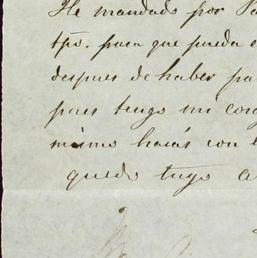 He mandado por
tpo. para que pueda
despues de haber pa
pues tengo mi cora
mismo harás con
quedo tuyo a